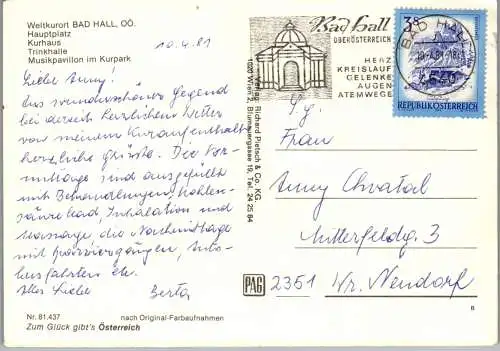 Weltkurort BAD HALL, OÖ.
Hauptplatz
Kurhaus
Trinkhalle
Musikpavillon im Kurpark
10.4.81
Liebe Anny!
Aus wunderschöner Gegend
bei derzeit herzlichem Wetter
von meinem Kuraufenthalt
herzliche Grüsse. Die Vor-
mittage sind ausgefüllt
mit Behandlungen, Kohlen-
säurebad, Inhalation und
Massage, die Nachmittage
mit Spaziergängen, Auto-
busfahrten etc.
Alles Liebe Berta
Nr. 81.437 nach Original-Farbaufnahmen
Zum Glück gibt's Österreich
Verlag: Richard Pietsch & Co. KG.
1020 Wien 2, Blumauergasse 19, Tel. 24 25 64
PAG
Bad Hall
OBERÖSTERREICH
HERZ
KREISLAUF
GELENKE
AUGEN
ATEMWEGE
BAD HALL
4540
3 S
REPUBLIK ÖSTERREICH
Frau
Anny Chvatal
Mitterfeldg. 3
2351 Wr. Neudorf
8